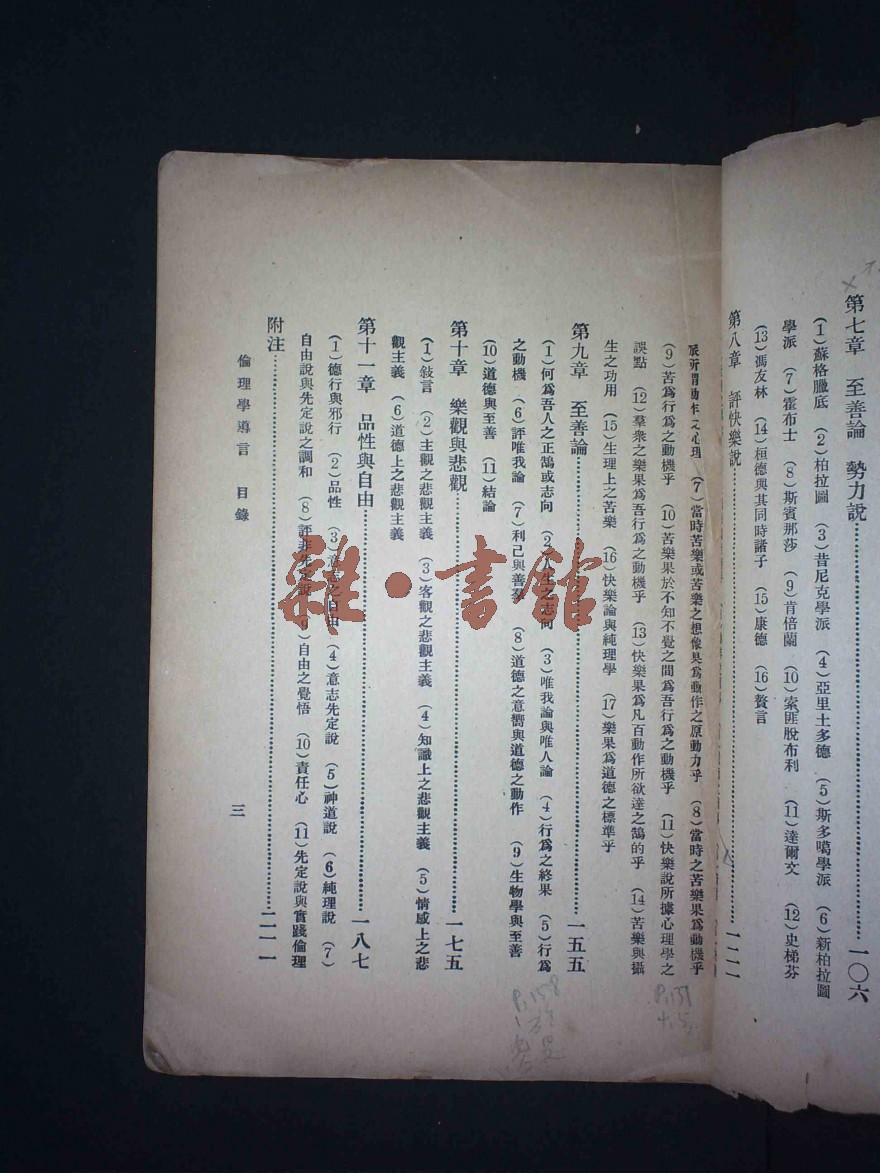 第七章 至善論 勢力說……一〇六
(1)蘇格臘底 (2)柏拉圖 (3)昔尼克學派 (4)亞里士多德 (5)斯多噶學派 (6)新柏拉圖
學派 (7)霍布士 (8)斯賓那莎 (9)肯倍蘭 (10)索匪脫布利 (11)達爾文 (12)史梯芬
(13)馮友林 (14)桓德與其同時諸子 (15)康德 (16)贅言
第八章 評快樂說……一二一
派所謂動作之心理 (7)當時苦樂或苦樂之想像果爲動作之原動力乎 (8)當時之苦樂果爲動機乎
(9)苦爲行爲之動機乎 (10)苦樂果於不知不覺之間爲吾行爲之動機乎 (11)快樂說所據心理學之
誤點 (12)羣衆之樂果爲吾行爲之動機乎 (13)快樂果爲凡百動作所欲達之鵠的乎 (14)苦樂與攝
生之功用 (15)生理上之苦樂 (16)快樂論與純理學 (17)樂果爲道德之標準乎
第九章 至善論……一五五
(1)何爲吾人之正鵠或志向 (2)人生之志向 (3)唯我論與唯人論 (4)行爲之終果 (5)行爲
之動機 (6)評唯我論 (7)利己與善羣 (8)道德之意嚮與道德之動作 (9)生物學與至善
(10)道德與至善 (11)結論
第十章 樂觀與悲觀……一七五
(1)敍言 (2)主觀之悲觀主義 (3)客觀之悲觀主義 (4)知識上之悲觀主義 (5)情感上之悲
觀主義 (6)道德上之悲觀主義
第十一章 品性與自由……一八七
(1)德行與邪行 (2)品性 (3)意志之自由 (4)意志先定說 (5)神道說 (6)純理說 (7)
自由說與先定說之調和 (8)評非先定說 (9)自由之覺悟 (10)責任心 (11)先定說與實踐倫理
附注……二一一
倫理學導言 目錄
三
雜·書館
P.158